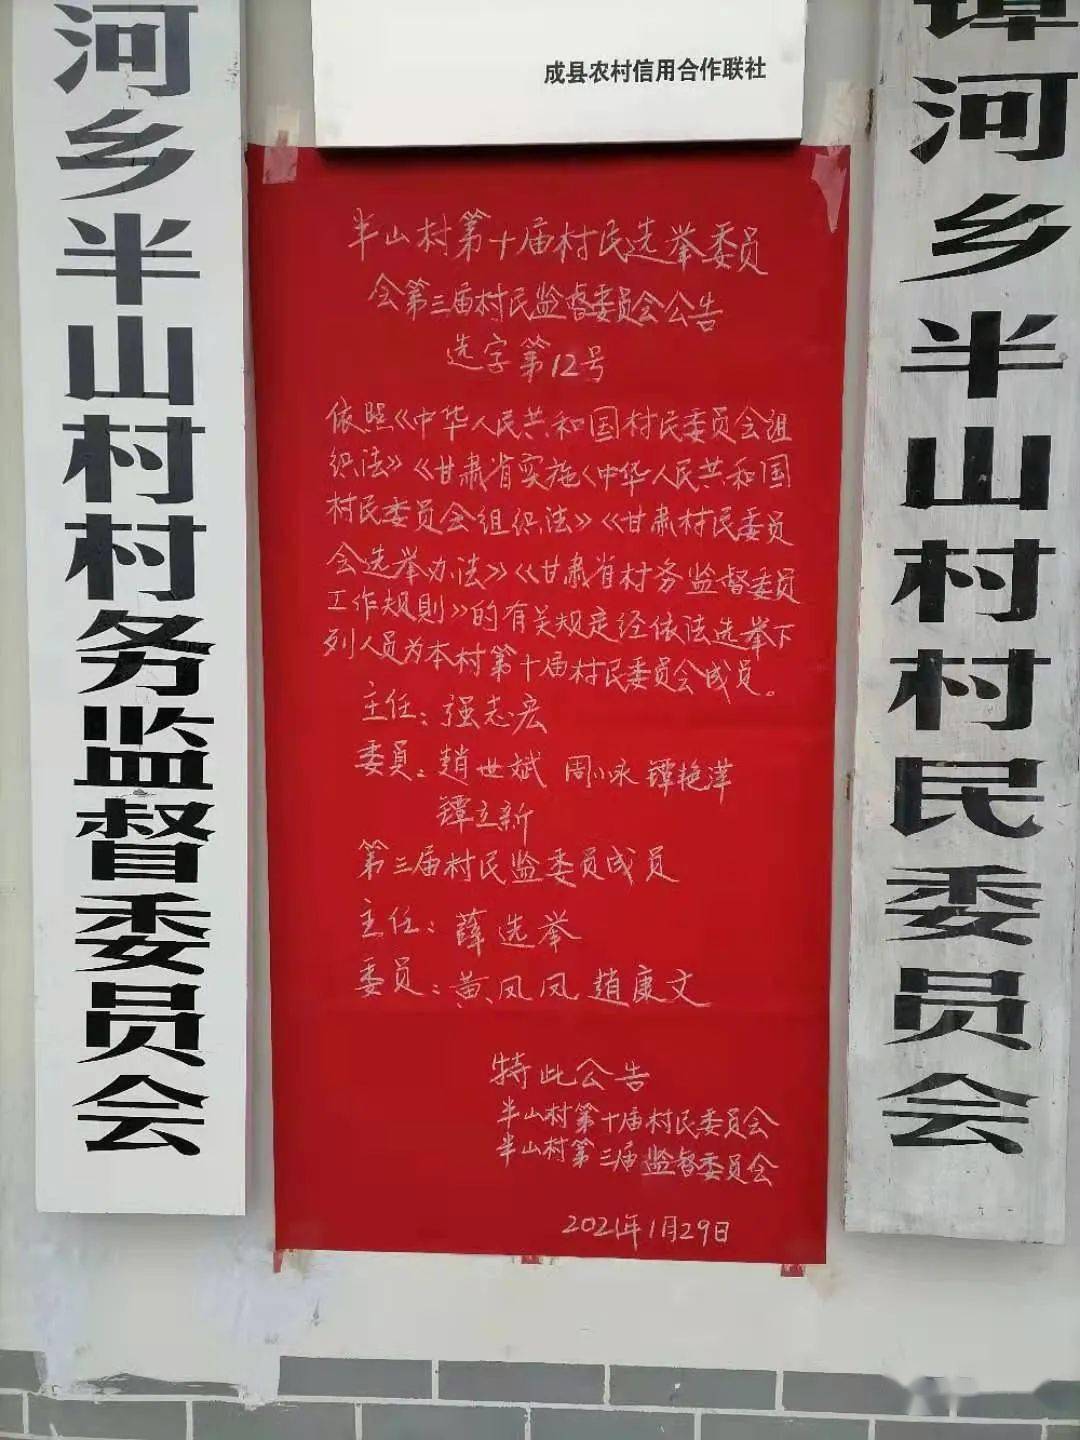 成县农村信用合作联社
河乡半山村村务监督委员会
半山村第十届村民选举委员
会第三届村民监督委员会公告
选字第12号
依照《中华人民共和国村民委员会组
织法》《甘肃省实施〈中华人民共和国
村民委员会组织法》《甘肃村民委员
会选举办法》《甘肃省村务监督委员
工作规则》的有关规定经依法选举下
列人员为本村第十届村民委员会成员。
主任：强志宏
委員：趙世斌 周小咏 镡艳萍
镡立新
第三届村民监委员成员
主任：薛选举
委员：黄凤凤 趙康文
特此公告
半山村第十届村民委员会
半山村第三届监督委员会
2021年1月29日
镡河乡半山村村民委员会